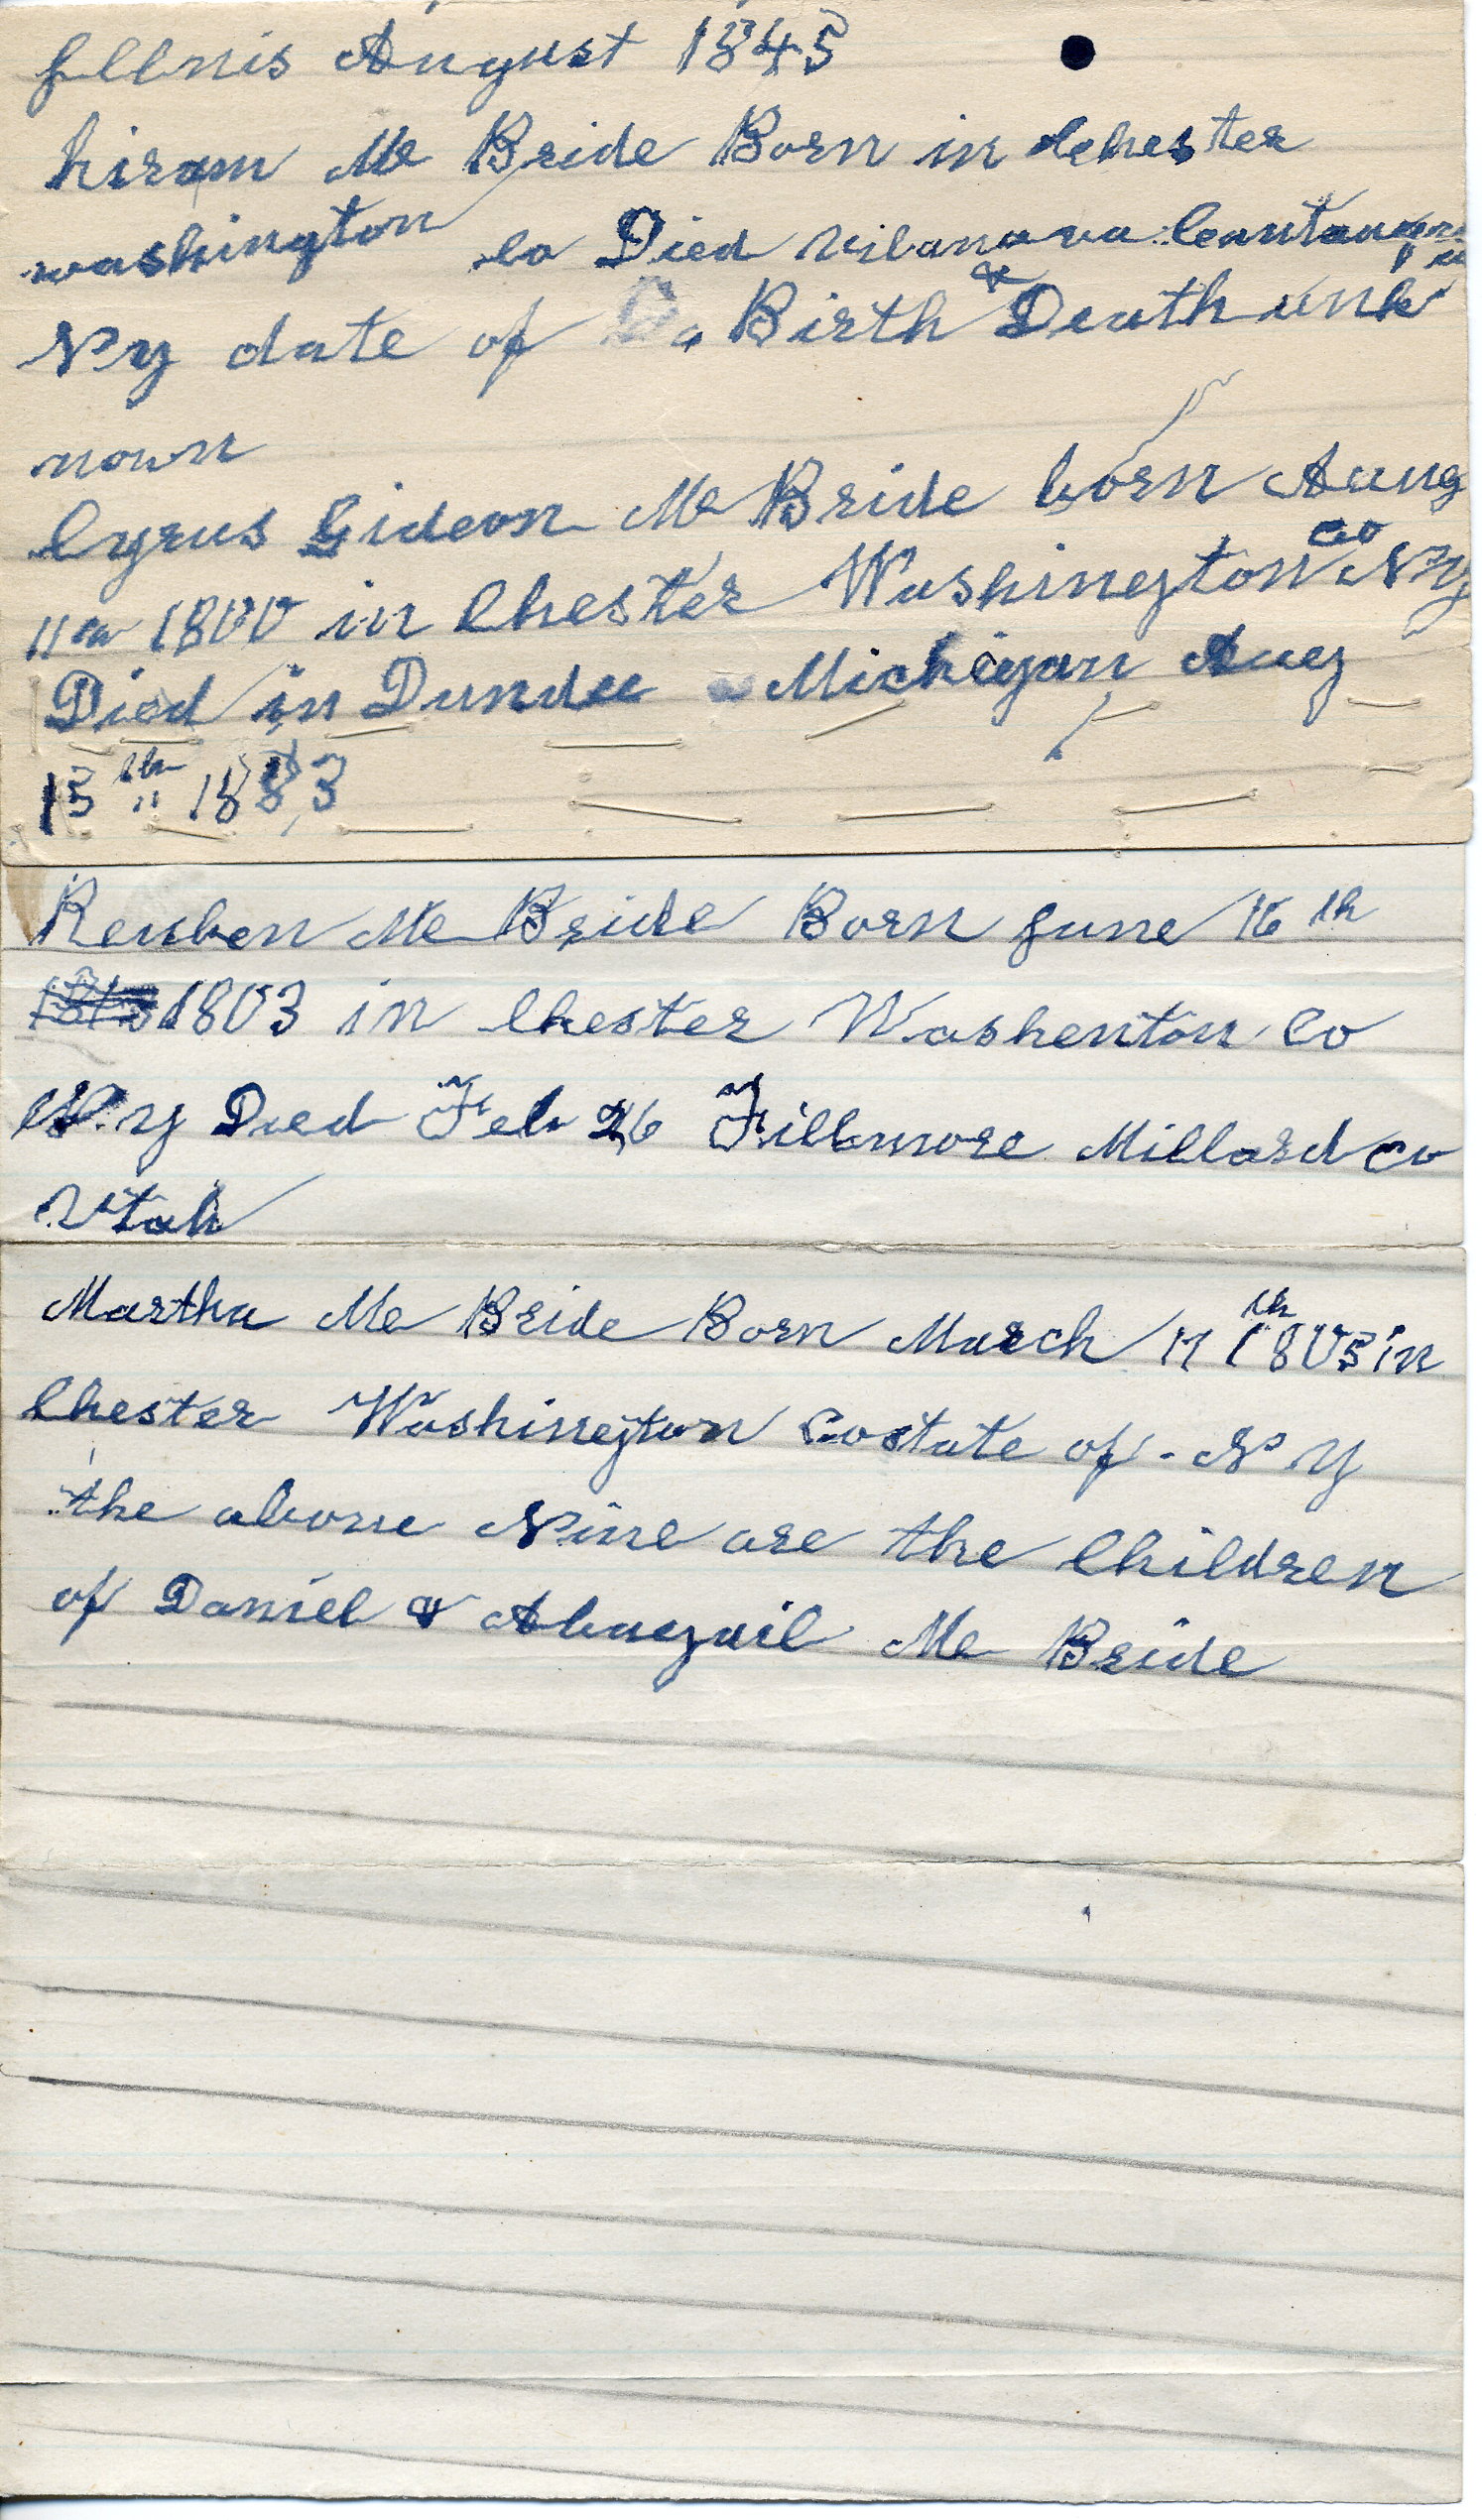 Illinis August 1845
hiram Mc Bride Born in chester
washington Co Died vilanova
N y date of Birth & Death unk
nown
Cyrus Gideon Mc Bride born Aug
11th 1800 in Chester Washington co N y
Died in Dundee Michigan Aug
15th 1883
Reuben Mc Bride Born June 16 th
1803 in Chester Washenton Co
N. y Died Feb 26 Fillmore Millard co
Utah
Martha Mc Bride Born March 17 th 1805 in
Chester Washington Co state of - N y
the above Nine are the Children
of Daniel & Abagail Mc Bride